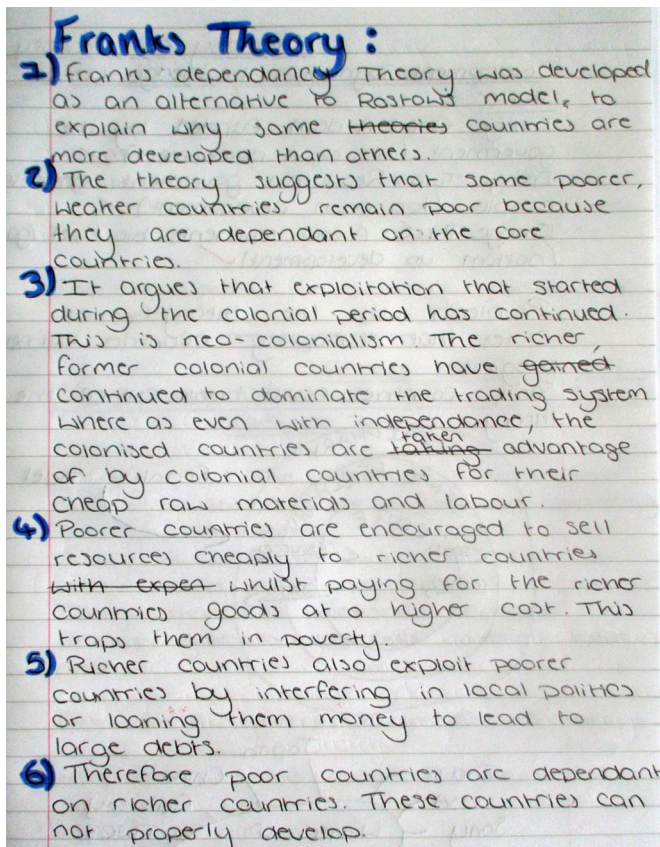 Franks Theory :
1) Franks dependancy Theory was developed
as an alternative to Rostows model, to
explain why some theories countries are
more developed than others.
2) The theory suggests that some poorer,
weaker countries remain poor because
they are dependant on the core
countries.
3) It argues that exploitation that started
during the colonial period has continued.
This is neo-colonialism The richer,
former colonial countries have gained
continued to dominate the trading system
where as even with independance, the
taken
colonised countries are taking advantage
of by colonial countries for their
cheap raw materials and labour.
4) Poorer countries are encouraged to sell
resources cheaply to richer countries
with expen whilst paying for the richer
countries goods at a higher cost. This
traps them in poverty.
5) Richer countries also exploit poorer
countries by interfering in local politics
or loaning them money to lead to
large debts.
6) Therefore poor countries are dependant
on richer countries. These countries can
not properly develop.